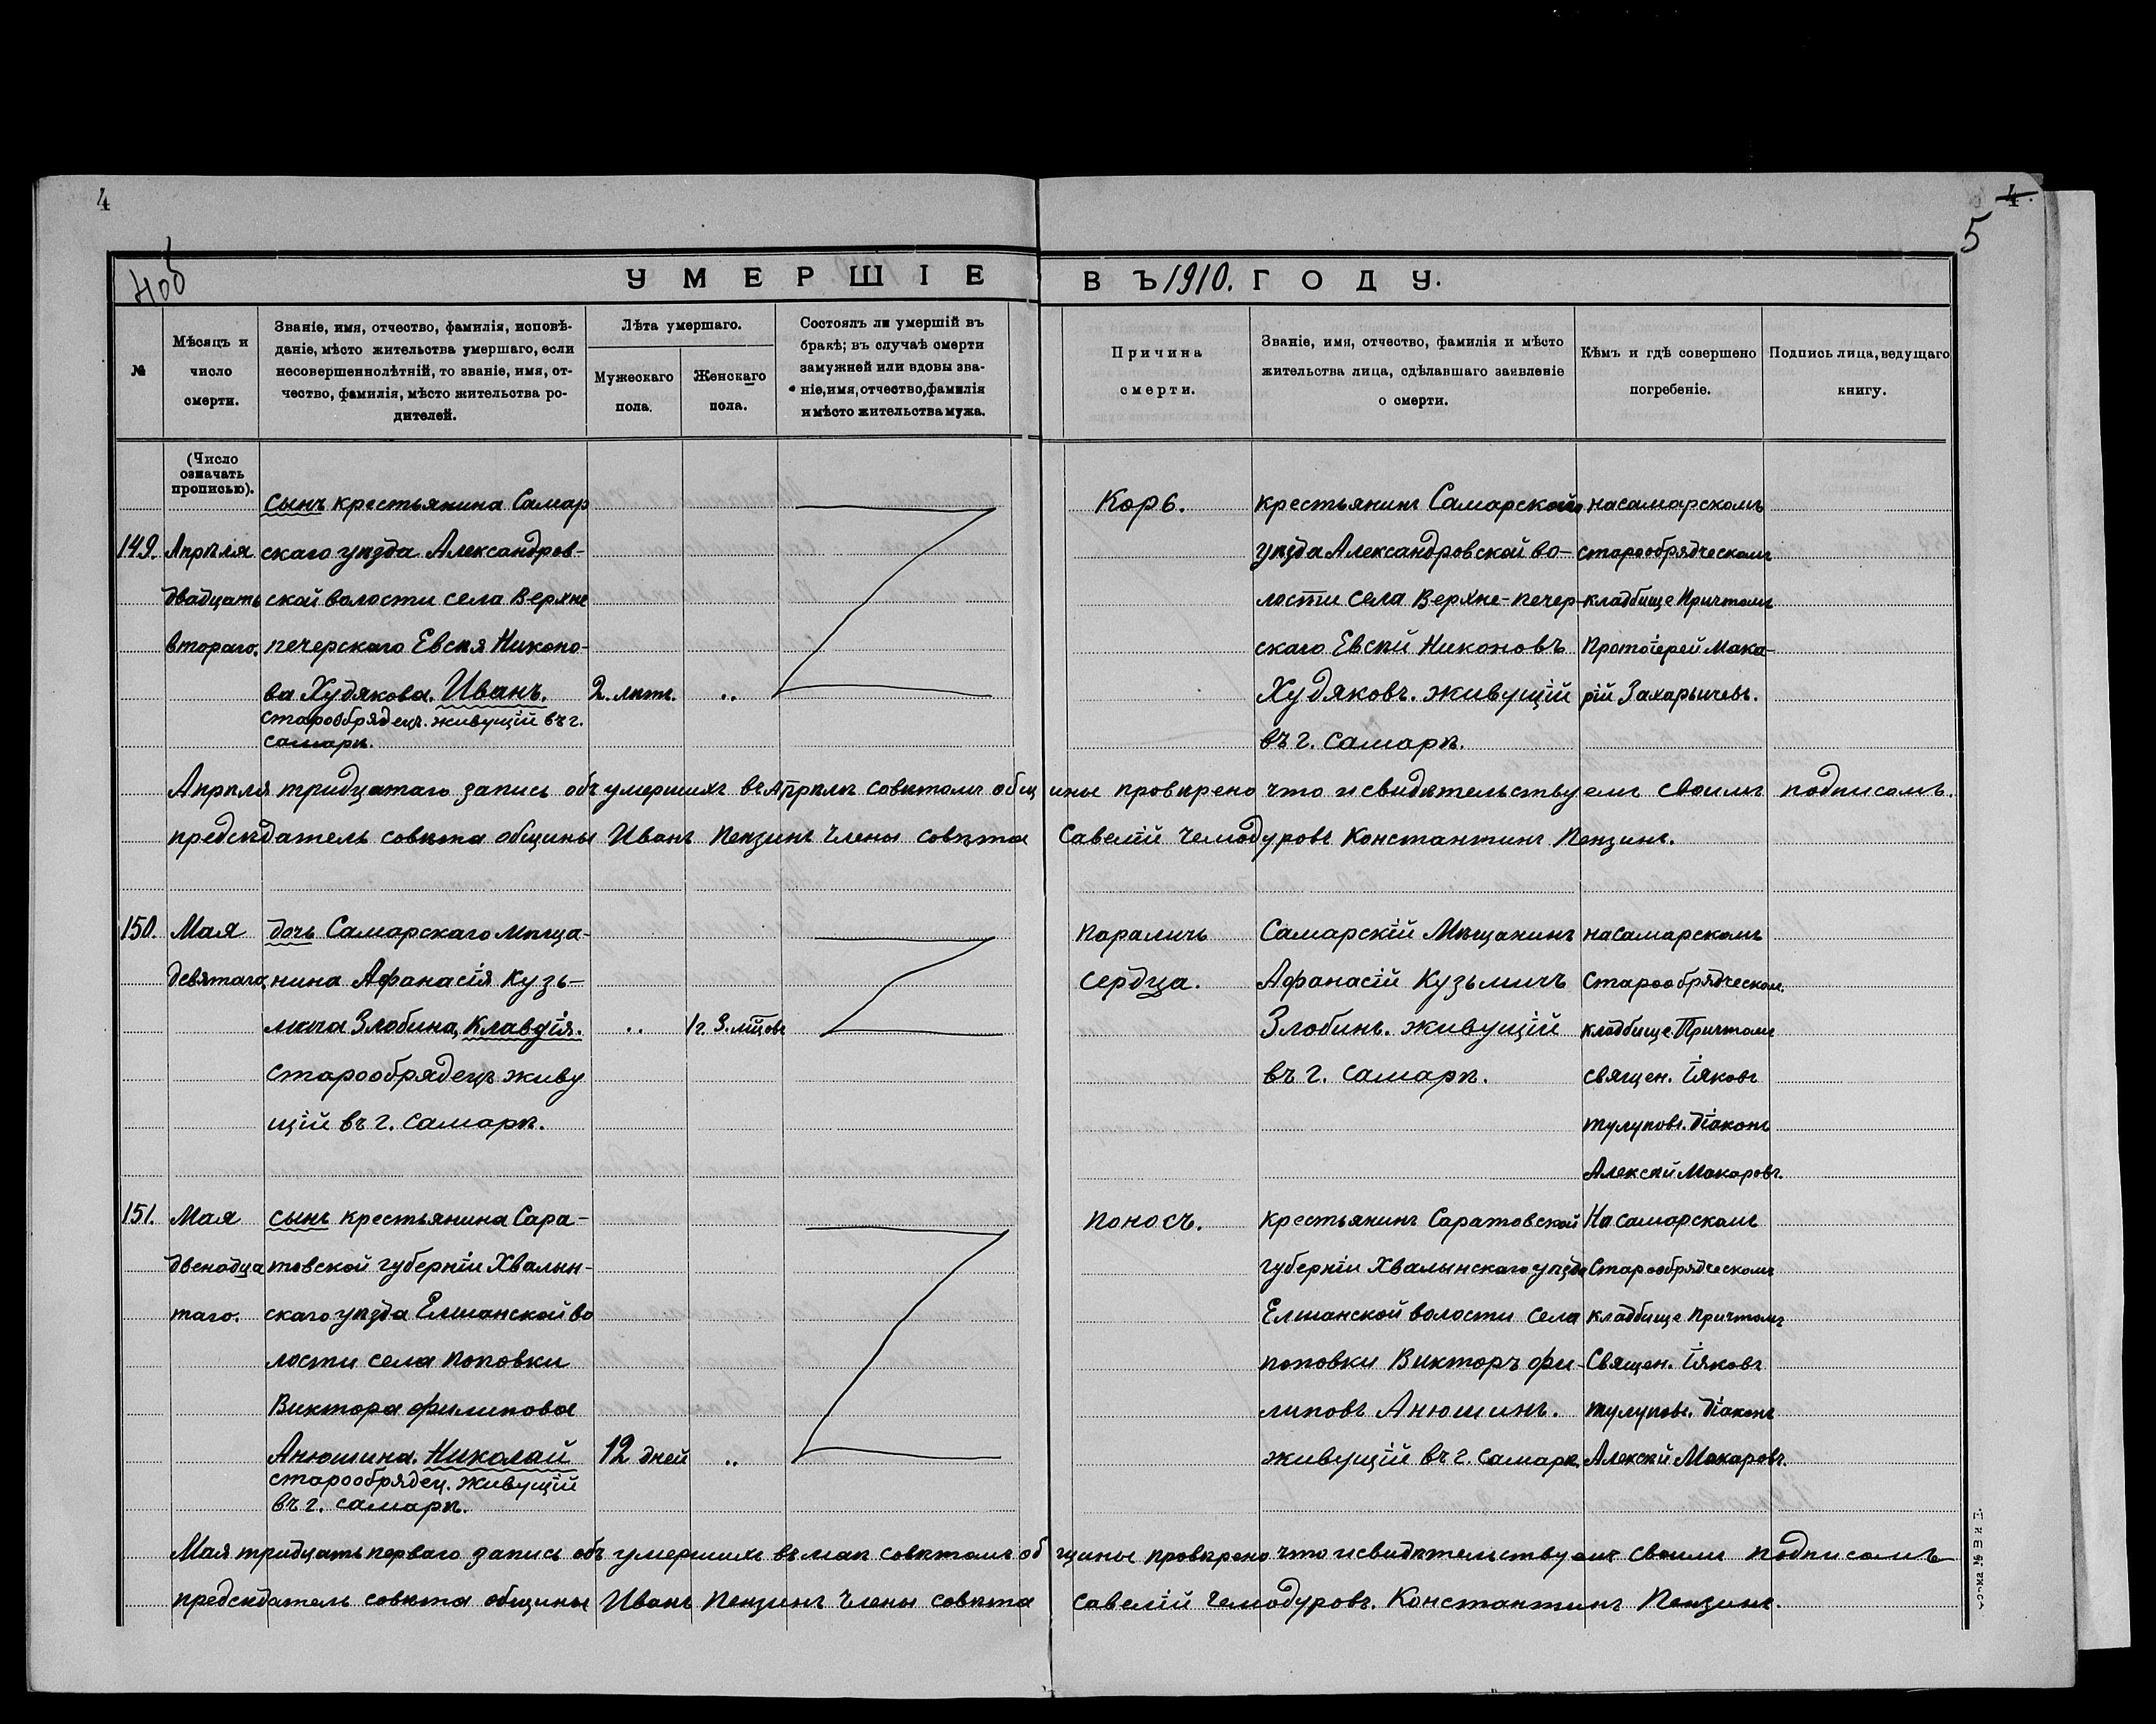 4
4.
5
4об
УМЕРШІЕ ВЪ 1910. ГОДУ.
№
Мѣсяцъ и
число
смерти.
Званіе, имя, отчество, фамилія, исповѣ-
даніе, мѣсто жительства умершаго, если
несовершеннолѣтній, то званіе, имя, от-
чество, фамилія, мѣсто жительства ро-
дителей.
Лѣта умершаго.
Мужескаго
пола.
Женскаго
пола.
Состоялъ ли умершій въ
бракѣ; въ случаѣ смерти
замужней или вдовы зва-
ніе, имя, отчество, фамилія
и мѣсто жительства мужа.
Причина
смерти.
Званіе, имя, отчество, фамилія и мѣсто
жительства лица, сдѣлавшаго заявленіе
о смерти.
Кѣмъ и гдѣ совершено
погребеніе.
Подпись лица, ведущаго
книгу.
(Число
означать
прописью).
149.
Апрѣля
двадцать
втораго.
сынъ крестьянина Самар
скаго уѣзда Александров-
ской волости села Верхне
печерскаго Евсѣя Никоно-
ва Худякова. Иванъ.
старообрядецъ. живущій въ г.
самарѣ.
2. лѣтъ.
..
Корь.
крестьянинъ Самарскаго
уѣзда Александровской во-
лости села Верхне-печер-
скаго Евсѣй Никоновъ
Худяковъ. живущій
въ г. самарѣ.
на самарскомъ
старообрядческомъ
кладбище Причтомъ
Протоіерей Мака-
рій Захарычевъ.
Апрѣля тридцатаго запись объ умершихъ въ Апрѣлѣ совѣтомъ общины провѣрено что и свидѣтельствуемъ своимъ подписомъ.
предсѣдатель совѣта общины Иванъ Пензинъ Члены совѣта Савелій Чемодуровъ Константинъ Пензинъ.
150.
Мая
девятаго
дочь Самарскаго мѣща-
нина Афанасія Кузь-
мича Злобина, Клавдія.
старообрядецъ живу
щій въ г. самарѣ.
..
1 г. 3. мѣцовъ
параличъ
сердца.
Самарскій Мѣщанинъ
Афанасій Кузьмичъ
Злобинъ. живущій
въ г. самарѣ.
на самарскомъ
Старообрядческом.
кладбище. Причтомъ
священ. Іяковъ
тулуповъ. Діаконъ
Алексѣй Макаровъ.
151.
Мая
двенадца
таго.
сынъ крестьянина Сара-
товской губерніи Хвалын-
скаго уѣзда Елшанской во
лости села поповки
Виктора филипова
Анюшина. Николай
старообрядец. живущій
въ г. самарѣ.
12 дней
..
поносъ.
крестьянинъ Саратовской
губерніи Хвалынскаго уѣзда
Елшанской волости села
поповки Викторъ фи-
липовъ Анюшинъ.
живущій въ г. самарѣ.
На самарскомъ
Старообрядческомъ
кладбище причтомъ
Священ. Іяковъ
тулуповъ. Діаконъ
Алексѣй Макаровъ.
Мая тридцать перваго запись объ умершихъ въ маѣ совѣтомъ общины провѣрено что и свидѣтельствуемъ своимъ подписомъ
предсѣдатель совѣта общины Иванъ Пензинъ Члены совѣта савелій Чемодуровъ. Константинъ Пензинъ.